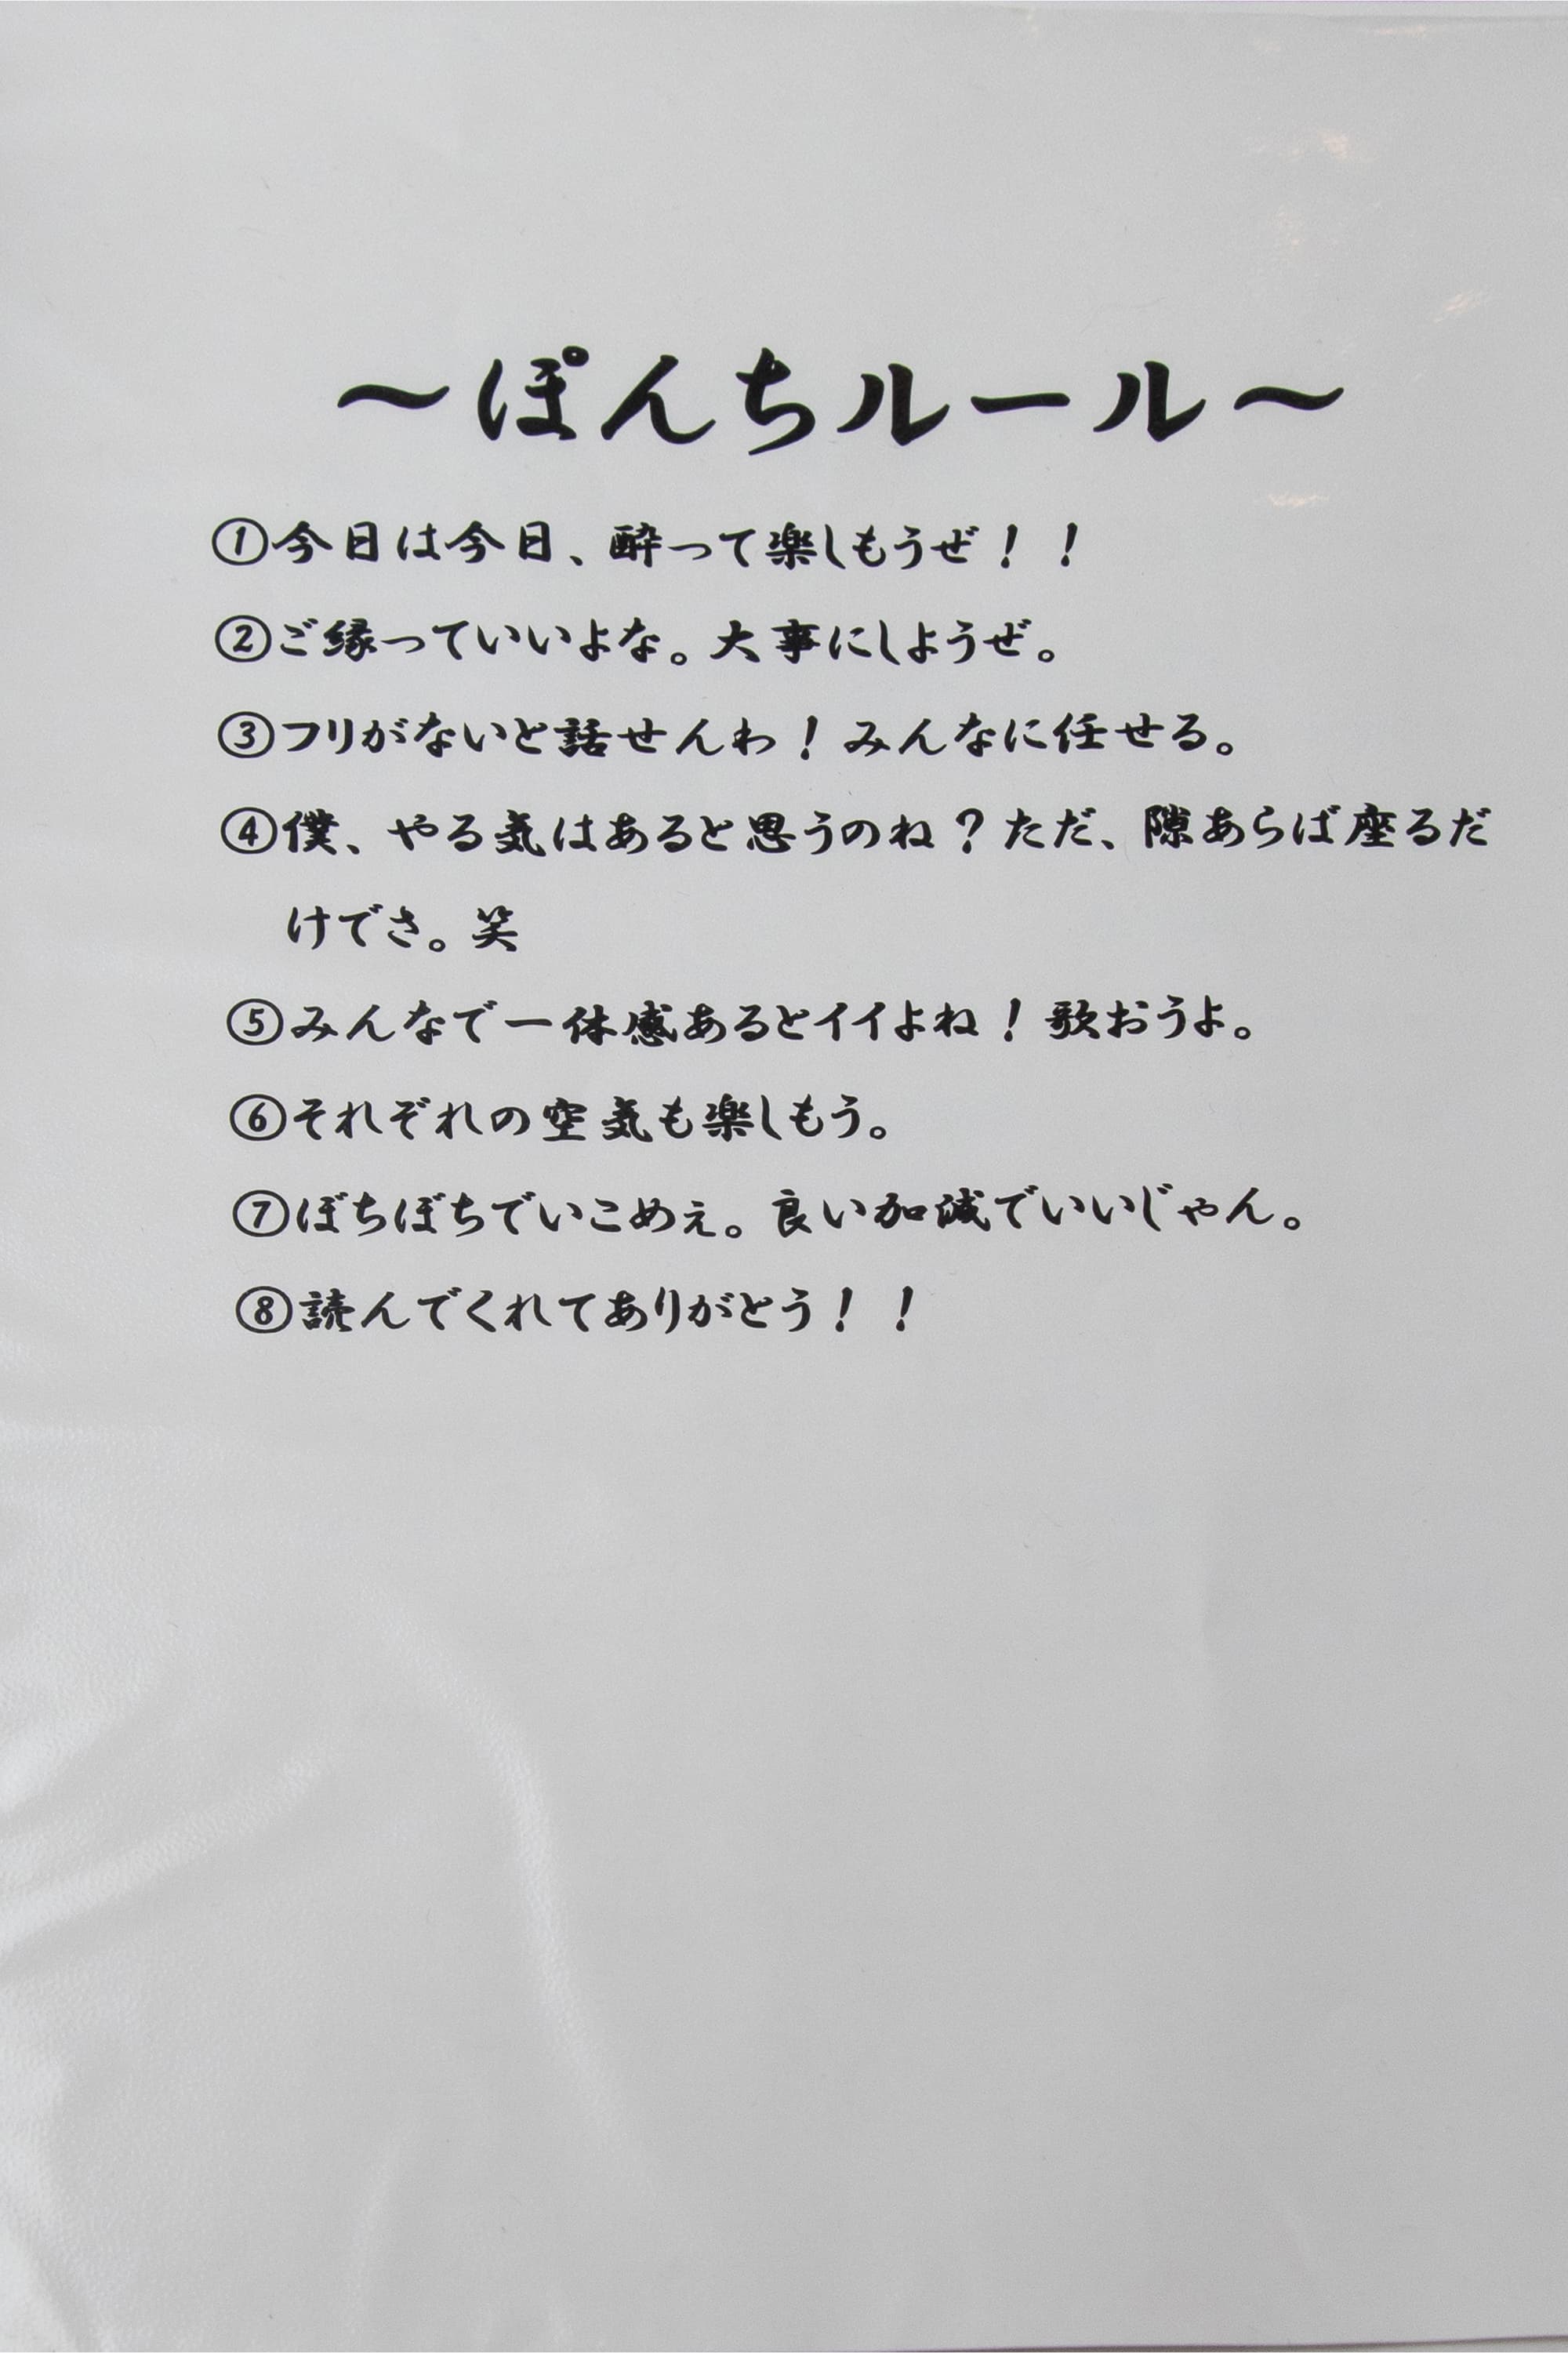 ～ぽんちルール～
①今日は今日、酔って楽しもうぜ！！
②ご縁っていいよな。大事にしようぜ。
③フリがないと話せんわ！みんなに任せる。
④僕、やる気はあると思うのね？ただ、隙あらば座るだ
けでさ。笑
⑤みんなで一体感あるとイイよね！歌おうよ。
⑥それぞれの空気も楽しもう。
⑦ぼちぼちでいこめぇ。良い加減でいいじゃん。
⑧読んでくれてありがとう！！